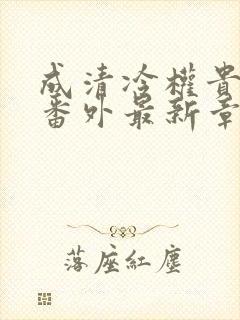 成清冷權貴
番外最新章
落座紅塵